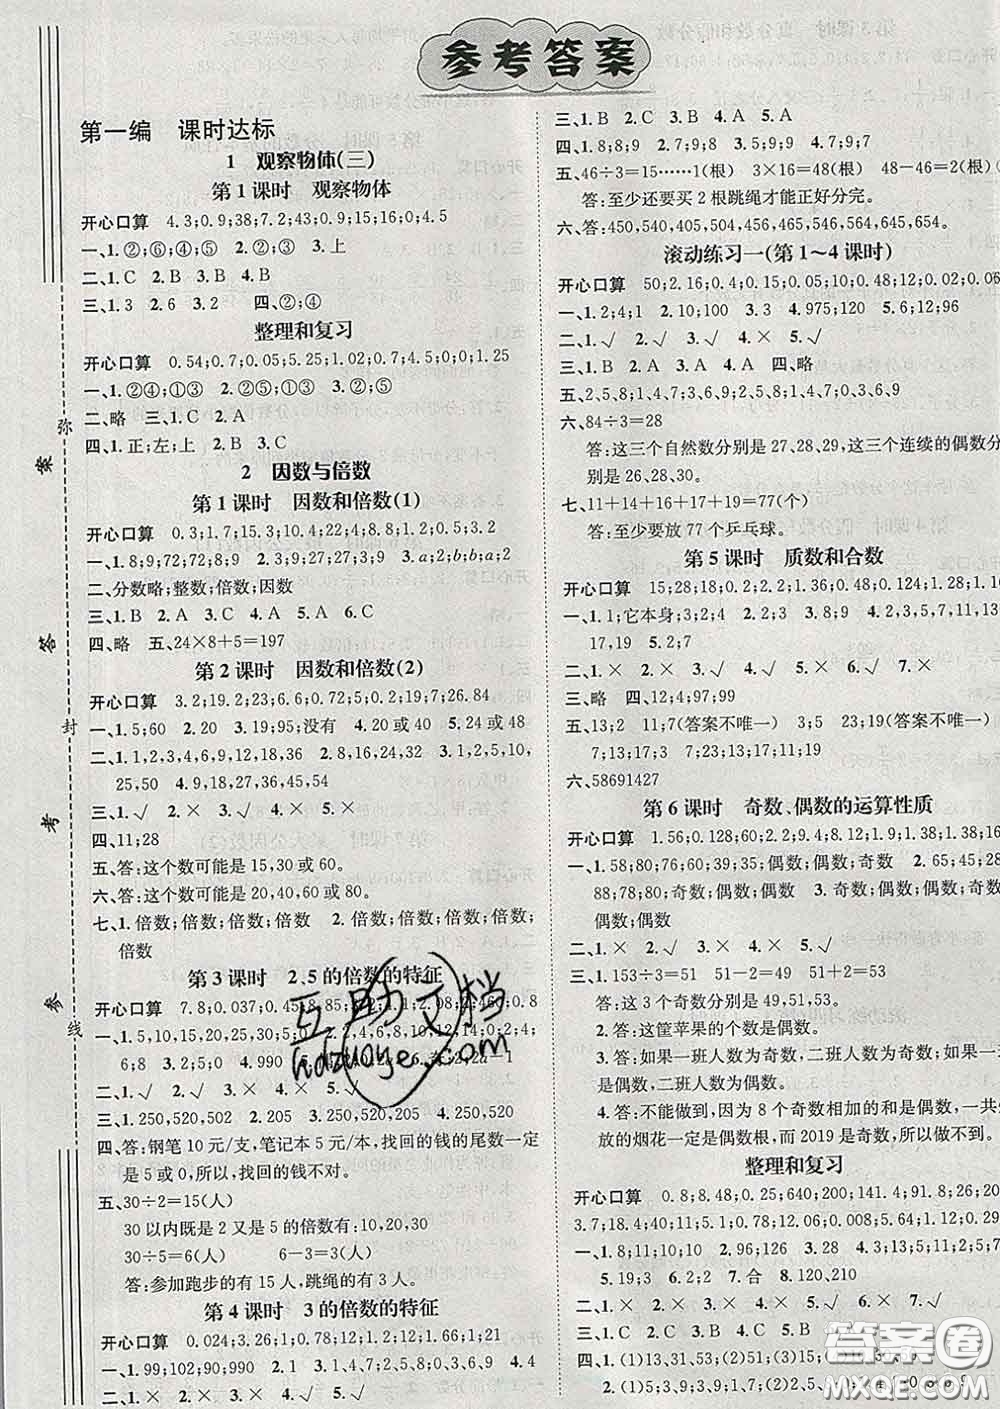 参考答案
第一编　课时达标
1　观察物体(三)
第1课时　观察物体
开心口算　4.3;0.9;38;7.2;43;0.9;15;16;0;4.5
一、1.②;⑥;④;⑤　2.②;③;⑤　3.上
二、1.C　2.B　3.B　4.C
三、1.3　2.6　3.2　　四、②;④
整理和复习
开心口算　0.54;0.7;0.05;5.25;1.02;40;0;0;0;1.25
一、1.②④;①③　2.②⑤;①③　3.①;②
二、略　三、1.C　2.A
四、1.正;左;上　2.A
2　因数与倍数
第1课时　因数和倍数(1)
开心口算　0.3;1.7;15.3;10.4;22;4;8.8;1.2;0.5;3.2
一、1.8;9;72;72;8;9　2.3;9;27;27;3;9　3.a;2;b;b;a;2
二、分数略;整数;倍数;因数
三、1.B　2.A　3.C　4.A　5.A　6.C
四、略　五、24×8+5=197
第2课时　因数和倍数(2)
开心口算　3.2;19.2;23;6.6;0.72;5;0.2;19;7;26.84
一、1.5;60　2.20　3.19;95;没有　4.20或40　5.24或48
二、1.1,2,3,4,6,9,12,18,36　2.8,16,24,32,40　3.1,2,5,10,
25,50　4.9,18,27,36,45,54
三、1.√　2.×　3.×　4.×　5.√
四、11;28
五、答:这个数可能是15,30或60。
六、答:这个数可能是20,40,60或80。
七、1.倍数;倍数;倍数;倍数　2.倍数;倍数;倍数;倍数;
倍数
第3课时　2、5的倍数的特征
6;8　5.0　4.990
二、1.×　2.√　3.×　4.×　5.×
三、1.250,520　2.205　3.250,520,205　4.250,520
四、答:钢笔10元/支,笔记本5元/本,找回的钱的尾数一定
是5或0,所以,找回的钱不对。
五、30÷2=15(人)
30以内既是2又是5的倍数有:10,20,30
30÷5=6(人)　　6-3=3(人)
答:参加跑步的有15人,跳绳的有3人。
第4课时　3的倍数的特征
开心口算　0.024;3.26;1;0.78;12;1.2;12;1.66;1;21
一、1.99;102;90;990　2.1　3.1,4,7　4.4
二、1.×　2.×　3.×　4.√
三、1.B　2.C　3.B　4.A　5.A
四、1.8;5;7;8　2.9;9;9　3.5;4　4.7;9;7
五、46÷3=15……1(根)　3×16=48(根)　48-46=2(根)
答:至少还要买2根跳绳才能正好分完。
六、答:450,540,405,504,456,465,546,564,645,654。
滚动练习一(第1~4课时)
开心口算　50;2.16;0.4;0.15;0.05;10;0.48;12;0.02;0.06
一、1.2;4;1　2.10;100　3.30　4.975;120　5.6;12;96
二、1.√　2.√　3.×　4.√　5.√
三、1.B　2.C　3.B　4.A　四、略
五、2,5,8;2,5,8;1,4,7;0,3,6,9
六、84÷3=28
答:这三个自然数分别是27、28、29,这三个连续的偶数分
别是26、28、30。
七、11+14+16+17+19=77(个)
答:至少要放77个乒乓球。
第5课时　质数和合数
开心口算　15;28;18;0.2;2.2;1.36;0.48;0.124;1.28;1.16
一、1.1;它本身;3;2;4　2.2;3　3.8;9　4.2,3,5,7,11,13,
17,19　5.2;7
二、1.×　2.×　3.×　4.×　5.√　6.√　7.×
三、略　四、12;4;97;99
五、13;2　11;7(答案不唯一)　3;5　23;19(答案不唯一)
7;13;17;3　7;23;13;11;17;3;7;2
六、58691427
第6课时　奇数、偶数的运算性质
开心口算　1.56;0.128;60;2.2;9.4;8.12;1.9;1.38;1.38;16
一、1.58;80;76;60;39;35;偶数;偶数;偶数　2.65;45;28;
88;78;80;奇数;偶数;偶数　3.奇数;偶数;奇数;奇数;
偶数;偶数
二、1.×　2.×　3.√　4.√　5.×
三、1.153÷3=51　51-2=49　51+2=53
答:这3个奇数分别是49,51,53。
2.答:这筐苹果的个数是偶数。
3.答:如果一班人数为奇数,二班人数为奇数;如果一班人数
是偶数,二班人数为偶数。
4.答:不能做到,因为8个奇数相加的和是偶数,一共
放的烟花一定是偶数根,而2019是奇数,所以做不到。
整理和复习
开心口算　0.8;8.48;0.25;640;200;141.4;91.8;26;20
3.7;18.4;40;11;5.1;0.78;12.06;0.008;5.64;12.1;0.29
一、1.8;11;10;10　2.96;126　3.88　4.30　
5.19;51　6.23　7.合　8.120、210
二、1.×　2.×　3.√　4.×　5.×　6.×　7.√
三、1.C　2.C　3.B　4.C　5.C
四、1.(1)13,31,53
2.(1)5;3,9;3,9;1,7
弥　封　线
参　考　答　案
互助文档
hdzuoye.com
答案圈
MXQE.COM